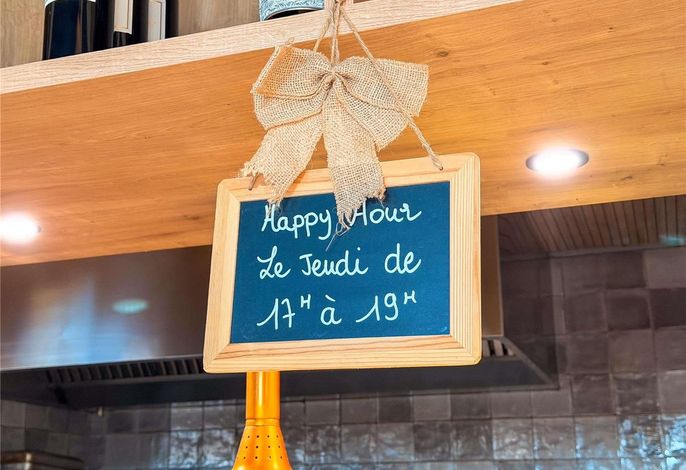 Happy Hour
Le Jeudi de
17H à 19H